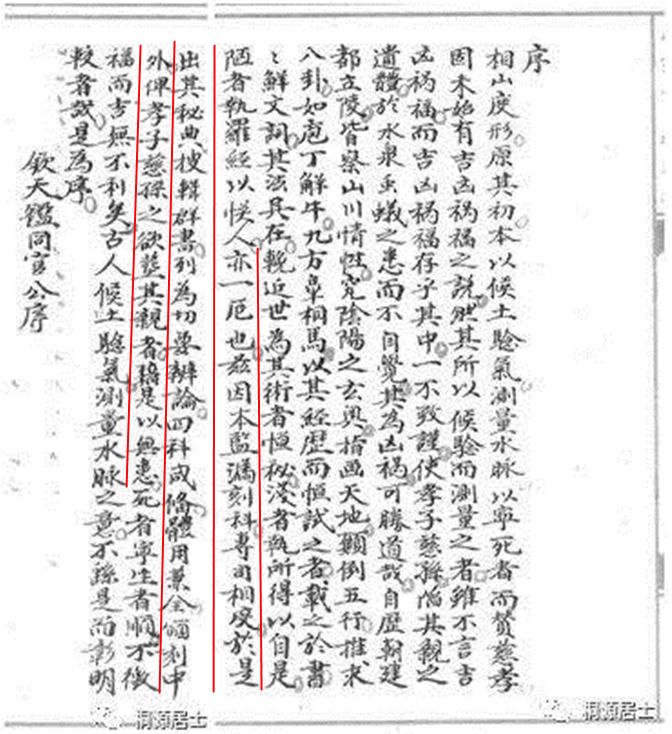 序
相山度形原其初本以候土驗氣測量水脉以寧死者而贊慈孝
固未始有吉凶禍福之説然其所以候驗而測量之者雖不言吉
凶禍福而吉凶禍福存乎其中一不致謹使孝子慈孫陷其親之
遺體於水泉虫蟻之患而不自覺其為凶禍可勝道哉自歷朝建
都立陵皆察山川情性究陰陽之玄奥指画天地顛倒五行推求
八卦如庖丁解牛九方臯相馬以其經歷而恒試之者載之於書
〻鮮文詞其法具在輓近世為其術者恒秘淺者執所得以自是
陋者執羅經以悮人亦一厄也兹因本監漏刻科專司相度於是
出其秘典捜輯群書列為切要辨論四科咸俻體用兼全緬刻中
外俾孝子慈孫之欲塟其親者藉是以無患死者寧生者順不徼
福而吉無不利矣古人候土驗氣測量水脉之意不繇是而彰明
較者哉是為序
欽天鑑同官公序
洞源居士
洞源居士